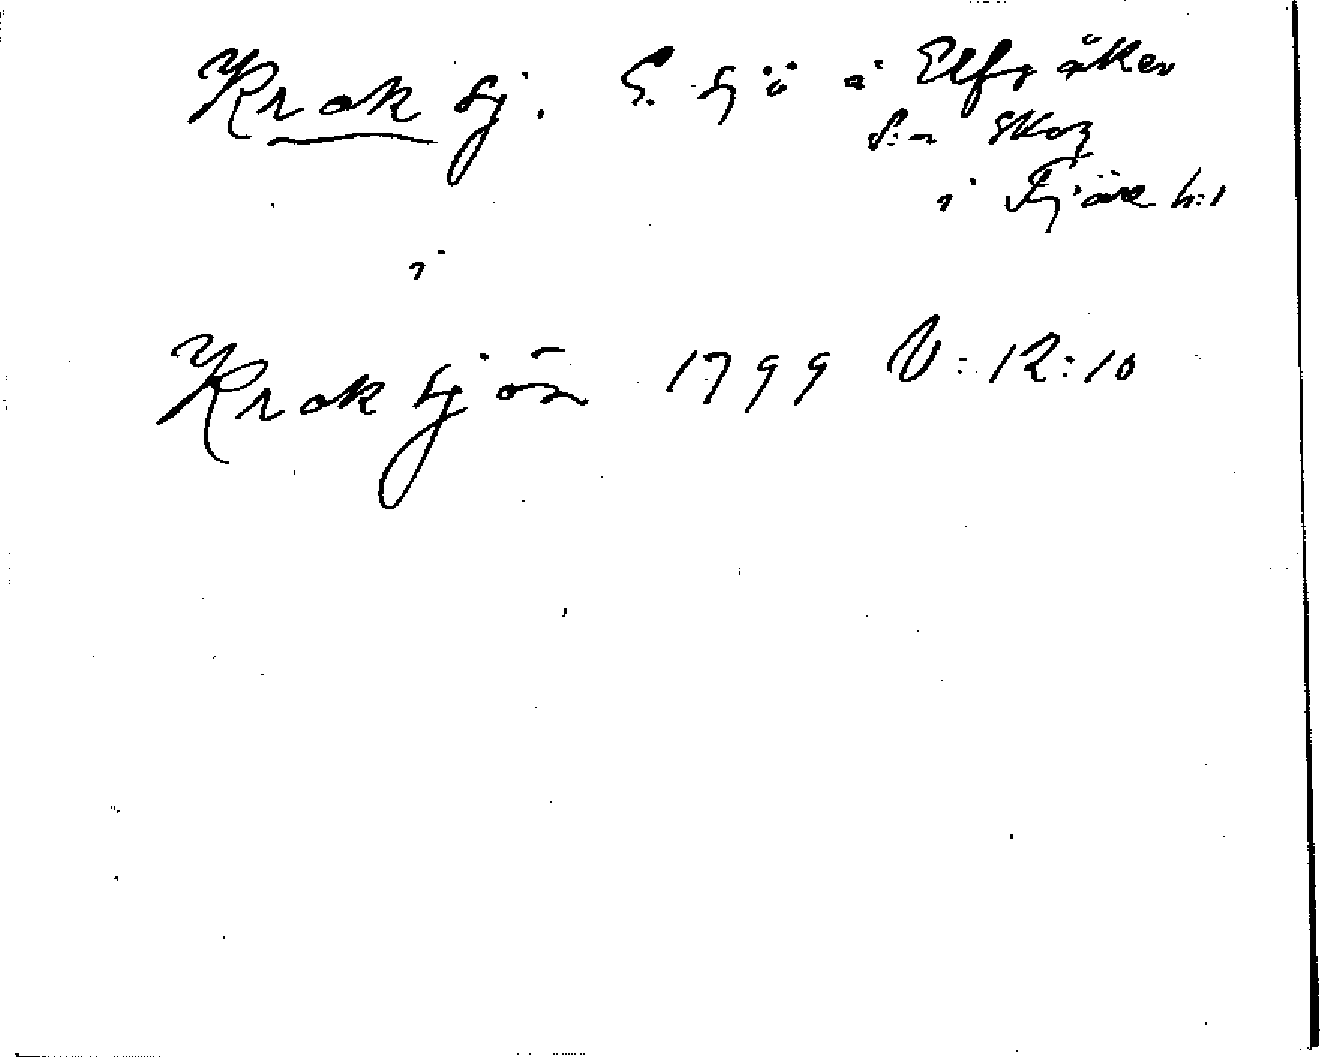 Kraksj. E. sjö å Elfsåker
s:n Skog
i Fjäre h:d
i
Kraksjön 1799 V:12:10